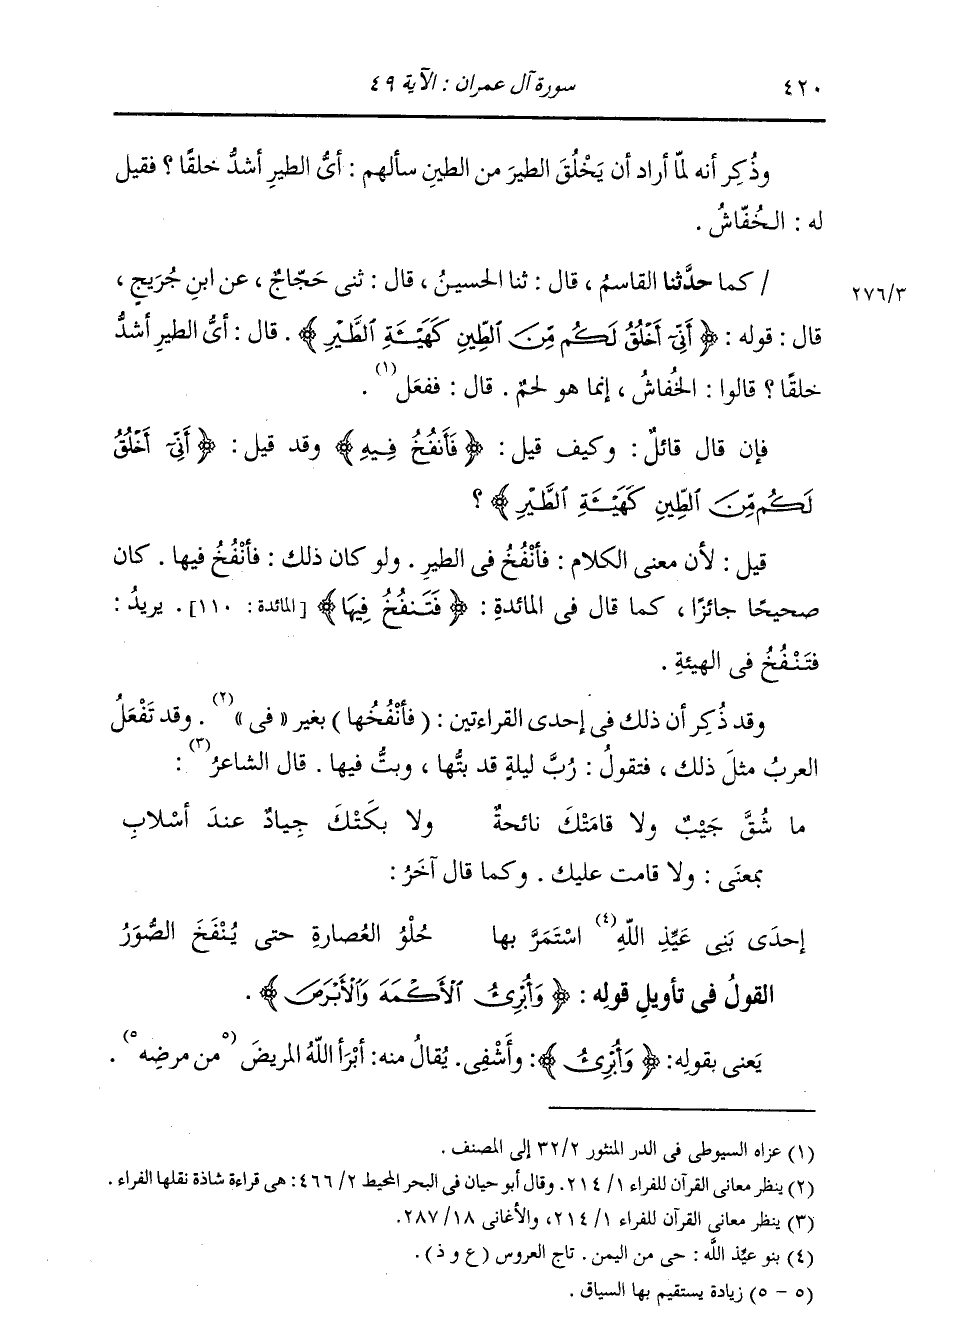 ٤٢٠ سورة آل عمران : الآية ٤٩
وذُكِر أنه لمّا أراد أن يَخْلُقَ الطيرَ من الطينِ سألهم : أىُّ الطيرِ أشدُّ خلقًا ؟ فقيل
له : الخُفّاشُ .
٢٧٦/٣ / كما حدَّثنا القاسمُ ، قال : ثنا الحسينُ ، قال : ثنى حَجّاجٌ ، عن ابنِ جُرَيجٍ ،
قال : قوله : ﴿ أَنِّىٓ أَخْلُقُ لَكُم مِّنَ ٱلطِّينِ كَهَيْـَٔةِ ٱلطَّيْرِ ﴾ . قال : أىُّ الطيرِ أشدُّ
خلقًا ؟ قالوا : الخُفاشُ ، إنما هو لحمٌ . قال : ففعَل(١) .
فإن قال قائلٌ : وكيف قيل : ﴿ فَأَنفُخُ فِيهِ ﴾ وقد قيل : ﴿ أَنِّىٓ أَخْلُقُ
لَكُم مِّنَ ٱلطِّينِ كَهَيْـَٔةِ ٱلطَّيْرِ ﴾ ؟
قيل : لأن معنى الكلام : فأنْفُخُ فى الطيرِ . ولو كان ذلك : فأنْفُخُ فيها . كان
صحيحًا جائزًا ، كما قال فى المائدةِ : ﴿ فَتَنفُخُ فِيهَا ﴾ [المائدة : ١١٠] . يريدُ :
فتَنْفُخُ فى الهيئةِ .
وقد ذُكِر أن ذلك فى إحدى القراءتين : ( فأنْفُخُها ) بغير « فى »(٢) . وقد تَفْعَلُ
العربُ مثلَ ذلك ، فتقولُ : رُبَّ ليلةٍ قد بتُّها ، وبتُّ فيها . قال الشاعرُ(٣) :
ما شُقَّ جَيْبٌ ولا قامَتْكَ نائحةٌ ولا بكَتْكَ جِيادٌ عندَ أسْلابِ
بمعنَى : ولا قامت عليك . وكما قال آخَرُ :
إحدَى بَنِى عَيِّذِ اللّهِ(٤) اسْتَمَرَّ بها حُلْوُ العُصارةِ حتى يُنْفَخَ الصُّوَرُ
القولُ فى تأويلِ قوله : ﴿ وَأُبْرِئُ ٱلْأَكْمَهَ وَٱلْأَبْرَصَ ﴾ .
يَعنى بقولِه: ﴿ وَأُبْرِئُ ﴾: وأَشْفِى. يُقالُ منه: أبْرَأ اللّهُ المريضَ (٥من مرضِه٥) .
(١) عزاه السيوطى فى الدر المنثور ٣٢/٢ إلى المصنف .
(٢) ينظر معانى القرآن للفراء ١/ ٢١٤. وقال أبو حيان فى البحر المحيط ٢/ ٤٦٦: هى قراءة شاذة نقلها الفراء .
(٣) ينظر معانى القرآن للفراء ١/ ٢١٤، والأغانى ١٨/ ٢٨٧.
(٤) بنو عيِّذ اللَّه : حى من اليمن . تاج العروس (ع و ذ) .
(٥ - ٥) زيادة يستقيم بها السياق .